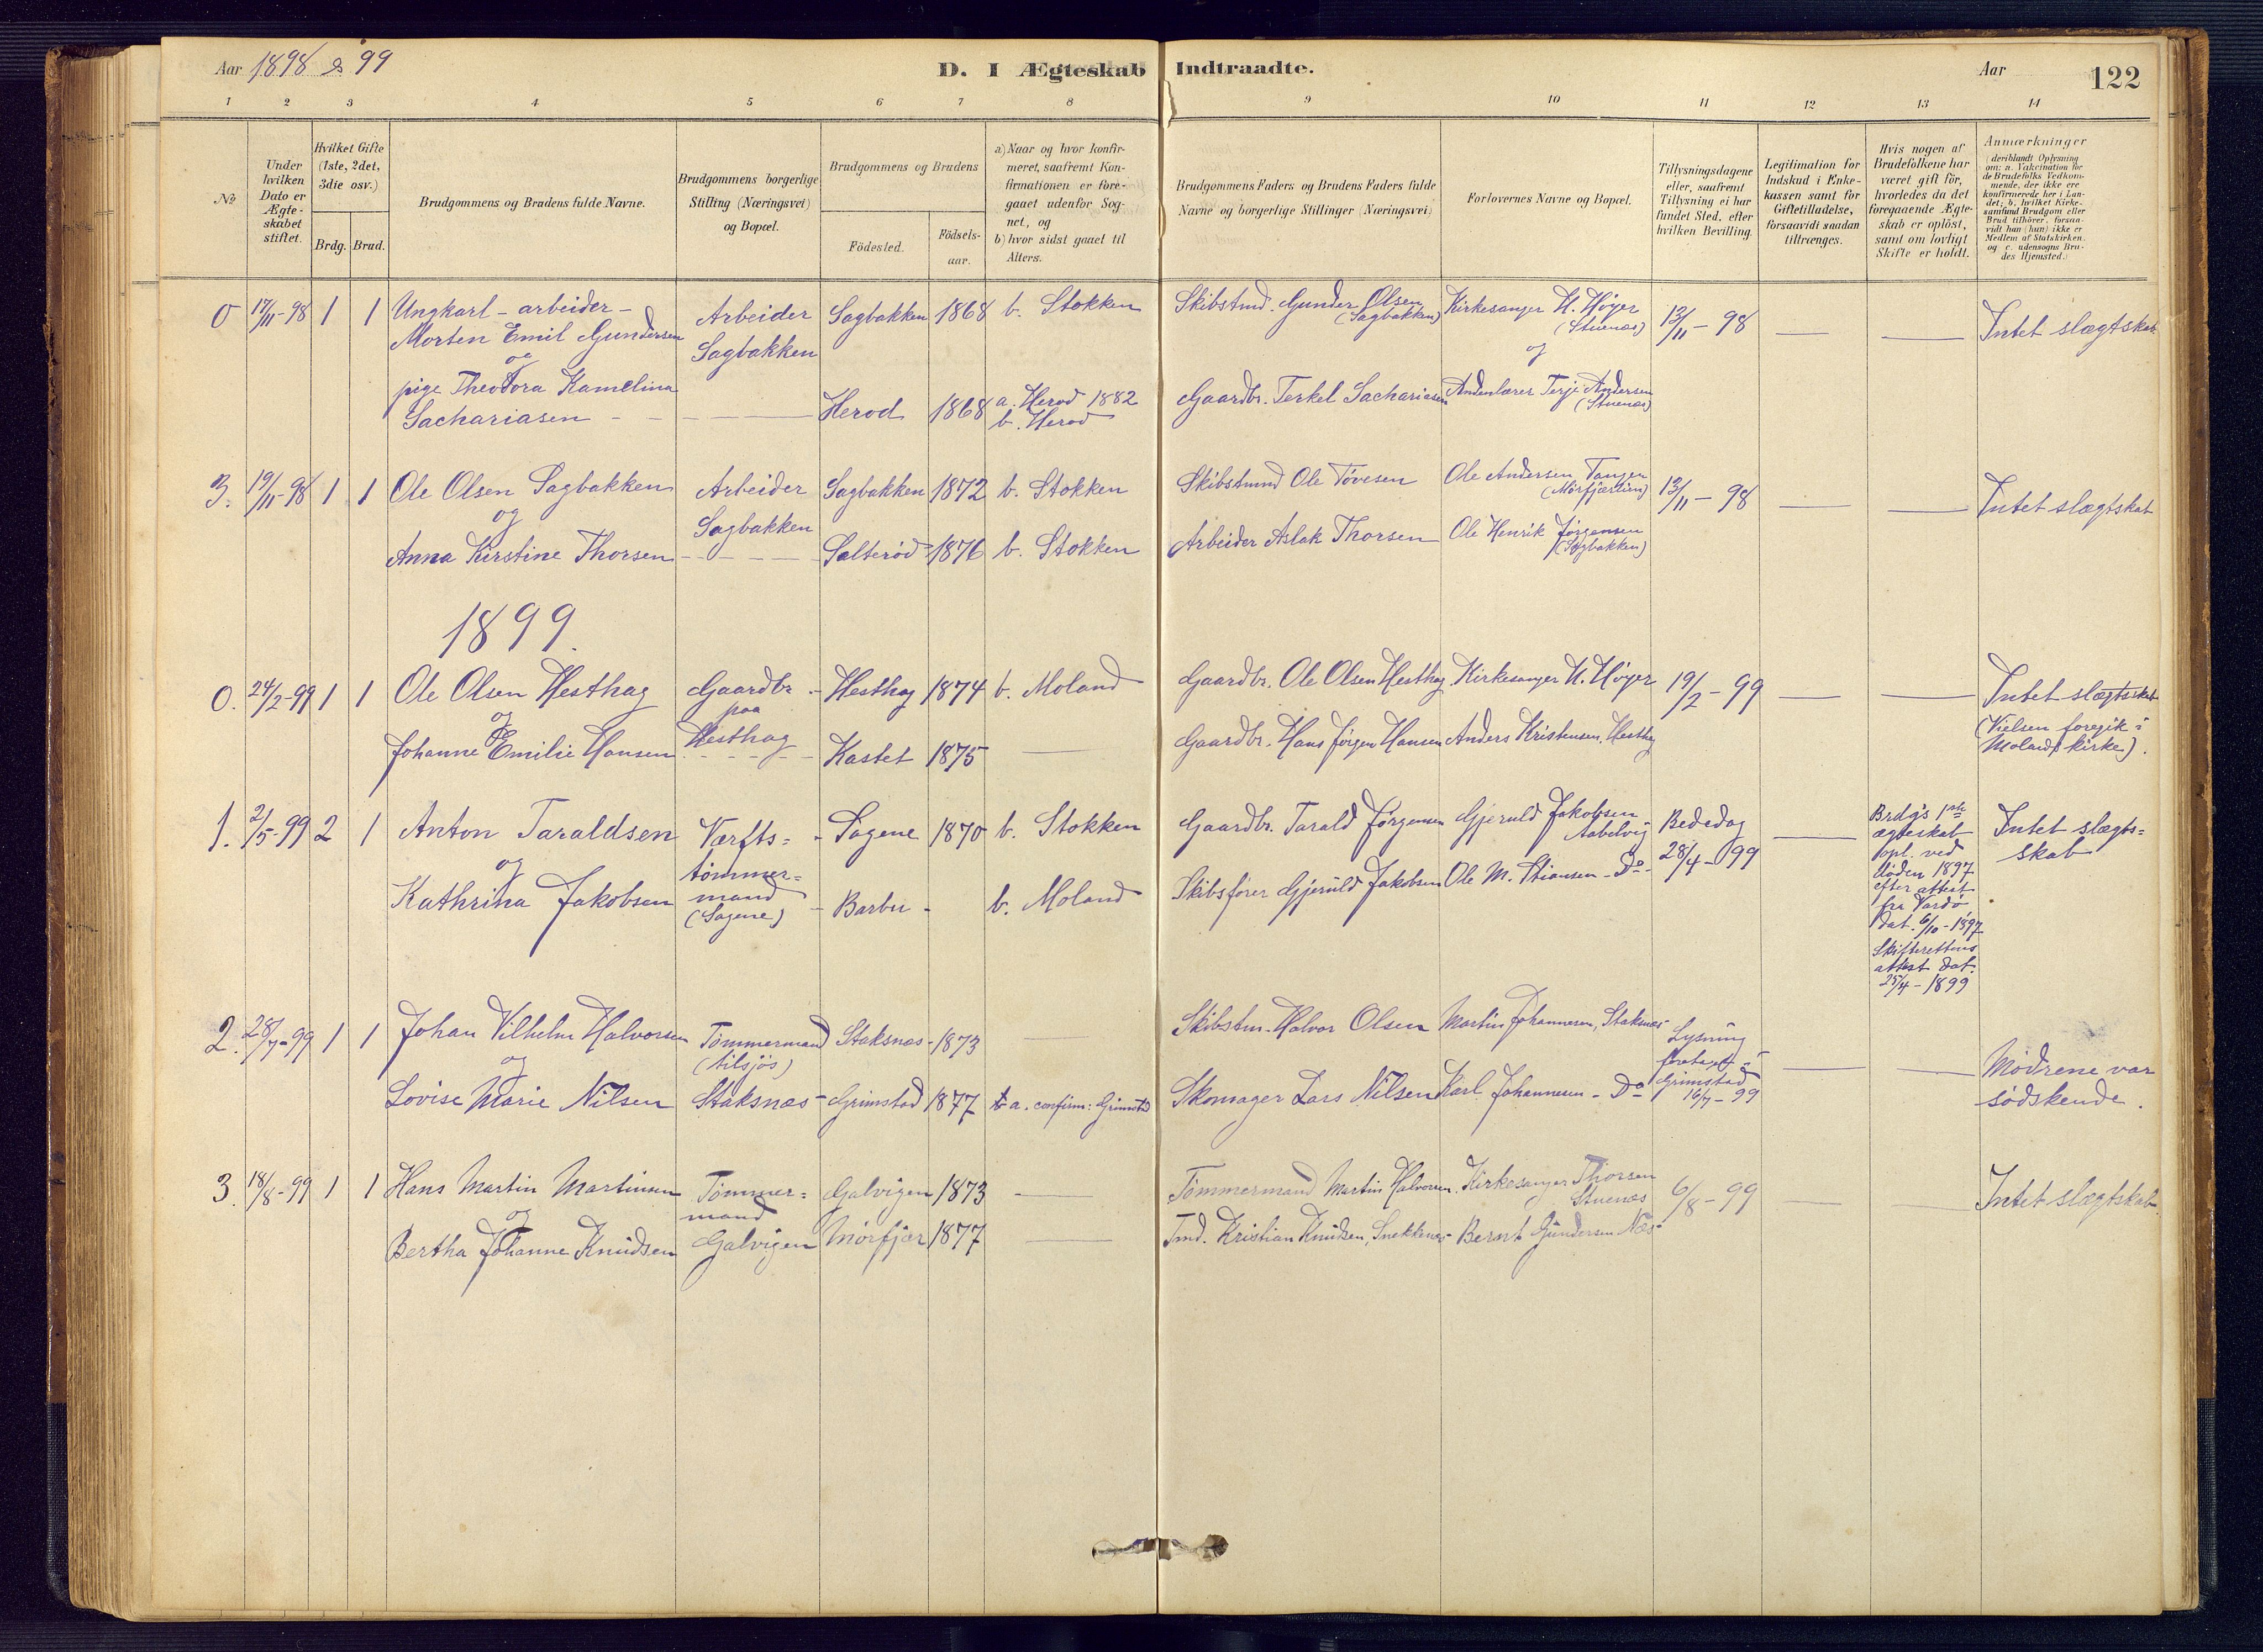 Aar 1898 & 99
D. I Ægteskab Indtraadte.
Aar
122
1 2 3 4 5 6 7 8 9 10 11 12 13 14
No
Under hvilken Dato er Ægteskabet stiftet.
Hvilket Gifte (1ste, 2det, 3die osv.)
Brdg. Brud.
Brudgommens og Brudens fulde Navne.
Brudgommens borgerlige Stilling (Næringsvei) og Bopæl.
Brudgommens og Brudens
Födested.
Födselsaar.
a) Naar og hvor konfirmeret, saafremt Konfirmationen er foregaaet udenfor Sognet, og
b) hvor sidst gaaet til Alters.
Brudgommens Faders og Brudens Faders fulde Navne og borgerlige Stillinger (Næringsvei)
Forlovernes Navne og Bopæl.
Tillysningsdagene eller, saafremt Tillysning ei har fundet Sted, efter hvilken Bevilling.
Legitimation for Indskud i Enkekassen samt for Giftetilladelse, forsaavidt saadan tiltrænges.
Hvis nogen af Brudefolkene har været gift för, hvorledes da det foregaaende Ægteskab er oplöst, samt om lovligt Skifte er holdt.
Anmærkninger (deriblandt Oplysning om: a. Vakcination for de Brudefolks Vedkommende, der ikke ere konfirmerede her i Landet; b. hvilket Kirkesamfund Brudgom eller Brud tilhörer, forsaavidt han (hun) ikke er Medlem af Statskirken, og c. udensogns Brudes Hjemsted.)
0 17/11-98 1 1 Ungkarl - arbeider - Arbeider Sagbakken 1868 b. Stokken Skibstmd. Gunder Olsen (Sagbakken) Kirkesanger K. Høyer (Stuenæs) 13/11-98 — — Intet slægtskab
Morten Emil Gundersen Sagbakken
og og
pige Theodora Kamelina
Sachariasen - - - Herod 1868 a. Herod 1882 b. Herod Gaardbr. Terkel Sachariasen Andenlærer Terje Andersen (Stuenæs)
3. 19/11-98 1 1 Ole Olsen Sagbakken Arbeider Sagbakken 1872 b. Stokken Skibstmnd Ole Tövesen Ole Andersen Tangen (Mörfjærlien) 13/11-98 — — Intet slægtskab
og Sagbakken
Anna Kirstine Thorsen - - - Salteröd 1876 b. Stokken Arbeider Aslak Thorsen Ole Henrik Jørgensen (Sagbakken)
1899.
0. 24/2-99 1 1 Ole Olsen Hesthag Gaardbr. - Hesthag 1874 b. Moland Gaardbr. Ole Olsen Hesthag Kirkesanger K. Høyer 19/2-99 — — Intet slægtskab
og paa
Johanne Emilie Hansen Hesthag - Kastet 1875 — Gaardbr. Hans Jørgen Hansen Anders Kristensen, Hesthag (Vielsen foregik i Molands kirke).
1. 2/5-99 2 1 Anton Taraldsen Værfts= - Sagene 1870 b. Stokken Gaardbr. Tarald Jørgensen Gjeruld Jakobsen Bededag 28/4-99 — Brdg's 1ste Intet slægts=
og tömmer= ægteskab skab
Kathrina Jakobsen mand (Sagene) - Barbu - b. Moland Skibsfører Gjeruld Jakobsen Ole M. Stiansen - Do - opl. ved
döden 1897
efter attest
fra Vardö
dat. 6/10-1897
Skifterettens
attest dat.
25/4-1899
2. 28/7-99 1 1 Johan Vilhelm Halvorsen Tömmermand Staksnæs - 1873 — Skibstm. Halvor Olsen Martin Johannesen, Staksnæs Lysning
og (tilsjös) foretaget i
Lovise Marie Nilsen Staksnæs - Grimstad 1877 a. confirm: Grimstad Skomager Lars Nilsen Karl Johannesen - Do Grimstad 16/7-99 — — Mödrene var södskende.
3. 18/8-99 1 1 Hans Martin Martinsen Tömmer= Galvigen 1873 — Tömmermand Martin Halvorsen Kirkesanger Thorsen Stuenæs 6/8-99 — — Intet slægtskab.
og mand
Bertha Johanne Knudsen Galvigen Mörfjær 1877 — Tmd. Kristian Knudsen, Snekkenæs Bernt Gundersen Næs